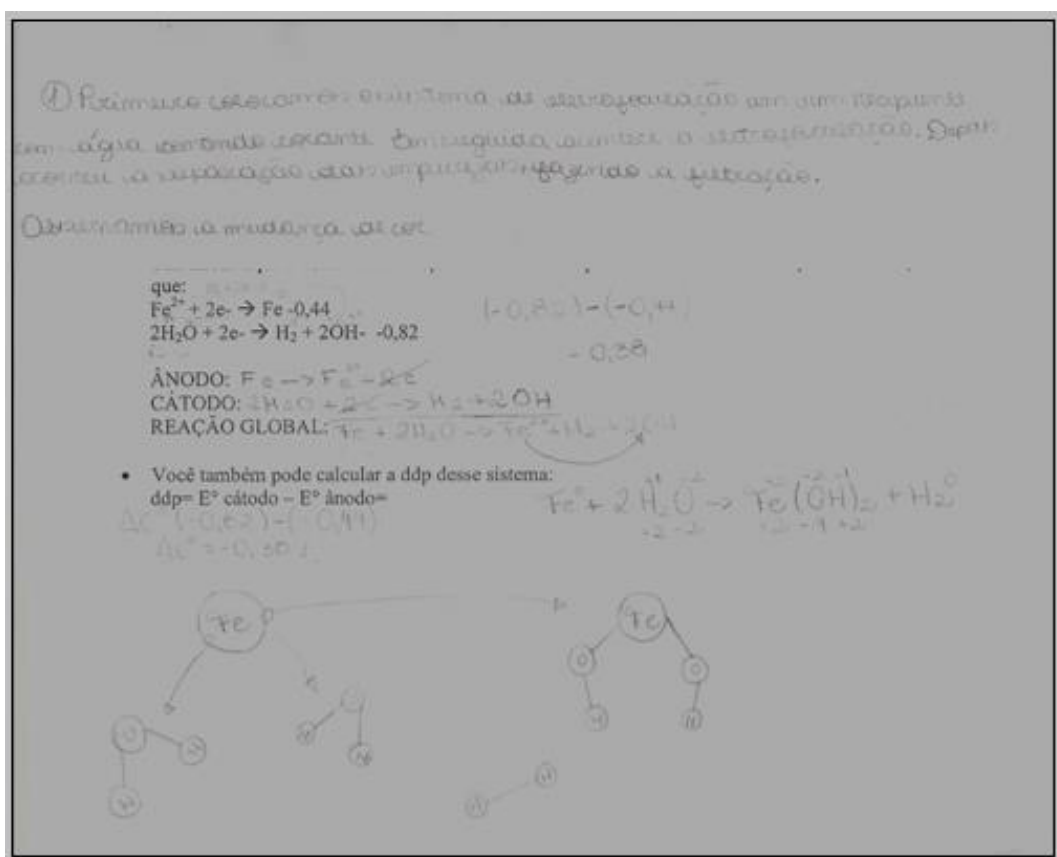 ① Primeiro colocamos o sistema de eletrofloculação em um recipiente
com água contendo corante Em seguida acontece a eletrofloculação. Depois
ocorreu a separação das impurezas, fazendo a filtração.
Observamos a mudança de cor
que:
Fe²⁺ + 2e- → Fe -0,44
2H₂O + 2e- → H₂ + 2OH- -0,82
(-0,82)-(-0,44)
-0,38
ÂNODO: Fe -> Fe²⁺ - 2e
CÁTODO: 2H₂O + 2e -> H₂ + 2OH
REAÇÃO GLOBAL: Fe + 2H₂O -> Fe²⁺ + H₂ + 2OH
• Você também pode calcular a ddp desse sistema:
ddp= E° cátodo – E° ânodo=
(-0,82)-(-0,44)
Fe⁰ + 2H₂O -> Fe(OH)₂ + H₂⁰
Fe Fe
O O
H H
O H H H H H
H H H